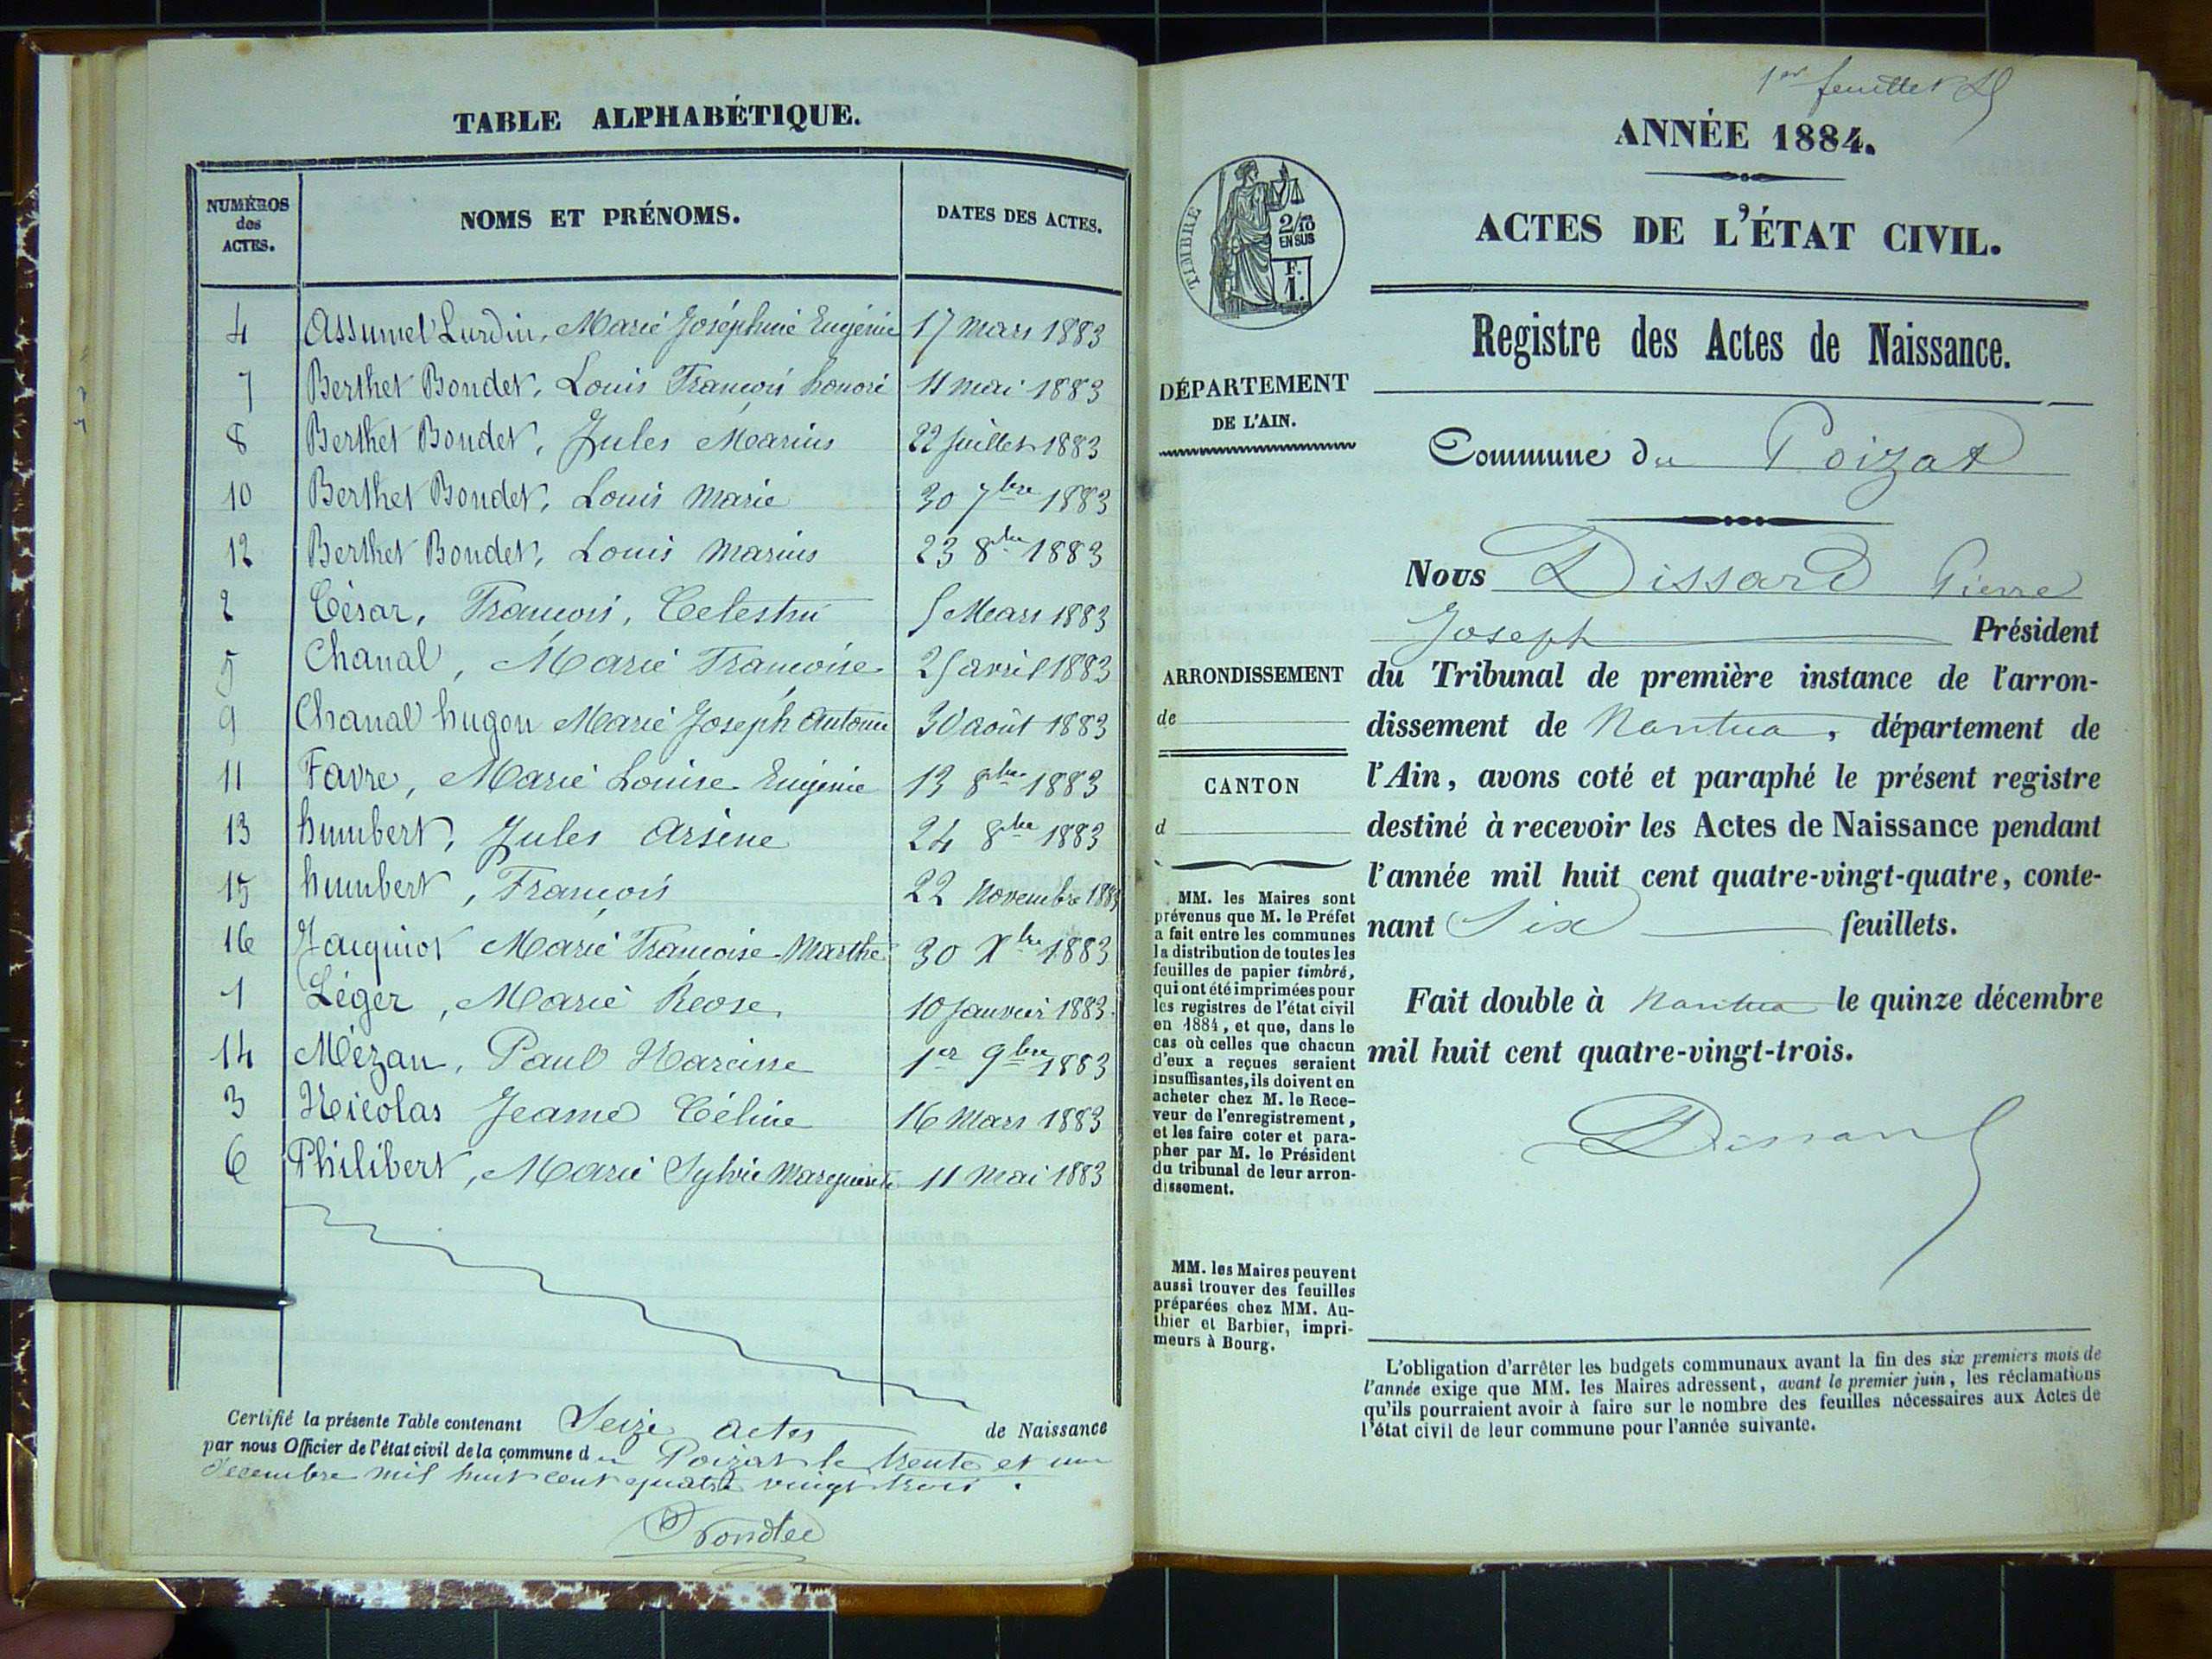 TABLE ALPHABÉTIQUE.
NUMÉROS des ACTES. NOMS ET PRÉNOMS. DATES DES ACTES.
4 Assumel Lurdin, Marie Joséphine Eugénie 17 mars 1883
7 Berthet Bondet, Louis François honoré 11 mai 1883
8 Berthet Bondet, Jules Marius 22 Juillet 1883
10 Berthet Bondet, Louis Marie 30 7bre 1883
12 Berthet Bondet, Louis Marius 23 8bre 1883
2 César, François, Celestin 5 Mars 1883
5 Chanal, Marie Françoise 25 avril 1883
9 Chanal hugon Marie Joseph Antoine 30 août 1883
11 Favre, Marie Louise Eugénie 13 8bre 1883
13 humbert, Jules Arsène 24 8bre 1883
15 humbert, François 22 Novembre 1883
16 Jacquiot Marie Françoise Marthe 30 Xbre 1883
1 Léger, Marie Rose 10 Janvier 1883.
14 Mézan, Paul Narcisse 1er 9bre 1883
3 Nicolas Jeanne Céline 16 Mars 1883
6 Philibert, Marie Sylvie Marguerite 11 Mai 1883
Certifié la présente Table contenant Seize actes de Naissance
par nous Officier de l'état civil de la commune du Poizat le trente et un
décembre mil huit cent quatre vingt trois.
1er feuillet
ANNÉE 1884.
ACTES DE L'ÉTAT CIVIL.
Registre des Actes de Naissance.
TIMBRE
2/10
EN SUS
F.
1.
DÉPARTEMENT
DE L'AIN.
ARRONDISSEMENT
de
CANTON
d
MM. les Maires sont
prévenus que M. le Préfet
a fait entre les communes
la distribution de toutes les
feuilles de papier timbré,
qui ont été imprimées pour
les registres de l'état civil
en 1884, et que, dans le
cas où celles que chacun
d'eux a reçues seraient
insuffisantes, ils doivent en
acheter chez M. le Rece-
veur de l'enregistrement,
et les faire coter et para-
pher par M. le Président
du tribunal de leur arron-
dissement.
MM. les Maires peuvent
aussi trouver des feuilles
préparées chez MM. Au-
thier et Barbier, impri-
meurs à Bourg.
Commune du Poizat
Nous Dissard Pierre
Joseph Président
du Tribunal de première instance de l'arron-
dissement de Nantua, département de
l'Ain, avons coté et paraphé le présent registre
destiné à recevoir les Actes de Naissance pendant
l'année mil huit cent quatre-vingt-quatre, conte-
nant Six feuillets.
Fait double à Nantua le quinze décembre
mil huit cent quatre-vingt-trois.
Dissard
L'obligation d'arrêter les budgets communaux avant la fin des six premiers mois de
l'année exige que MM. les Maires adressent, avant le premier juin, les réclamations
qu'ils pourraient avoir à faire sur le nombre des feuilles nécessaires aux Actes de
l'état civil de leur commune pour l'année suivante.